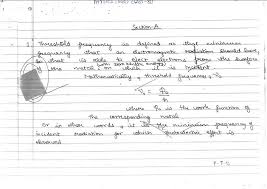 Section A
Threshold frequency is defined as that minimum
frequency that an electromagnetic radiation should have,
so that it is able to eject electrons from the surface
of the metal on which it is incident.
Mathematically, threshold frequency, ν₀
ν₀ = Φ₀
h
where Φ₀ is the work function of
the corresponding metal
Or in other words, it is the minimum frequency of
incident radiation for which photoelectric effect is
observed
P.T.O